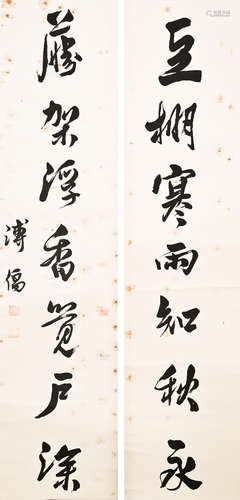 豆棚寒雨知秋永
藤架浮香覺戶深
溥儒